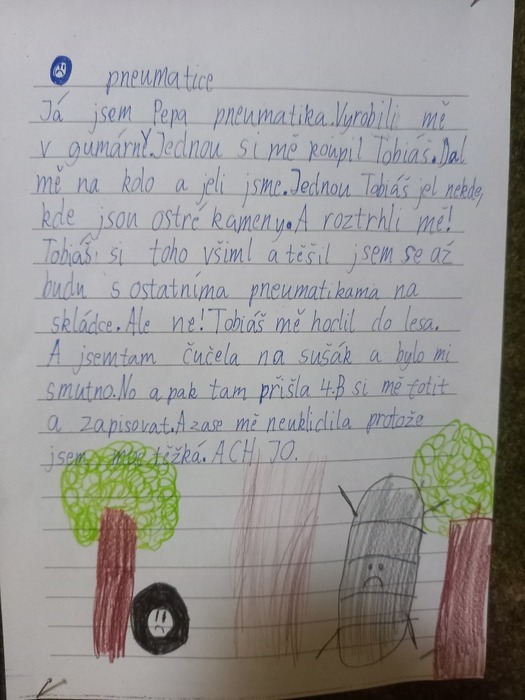 pneumatice
Já jsem Pepa pneumatika. Vyrobili mě
v gumárně. Jednou si mě koupil Tobiáš. Dal
mě na kolo a jeli jsme. Jednou Tobiáš jel nekde,
kde jsou ostré kameny. A roztrhli mě!
Tobiáš si toho všiml a těšil jsem se až
budu s ostatníma pneumatikama na
skládce. Ale ne! Tobiáš mě hodil do lesa.
A jsem tam čučela na sušák a bylo mi
smutno. No a pak tam přišla 4.B si mě fotit
a zapisovat. A zase mě neuklidila protože
jsem moc těžká. ACH JO.